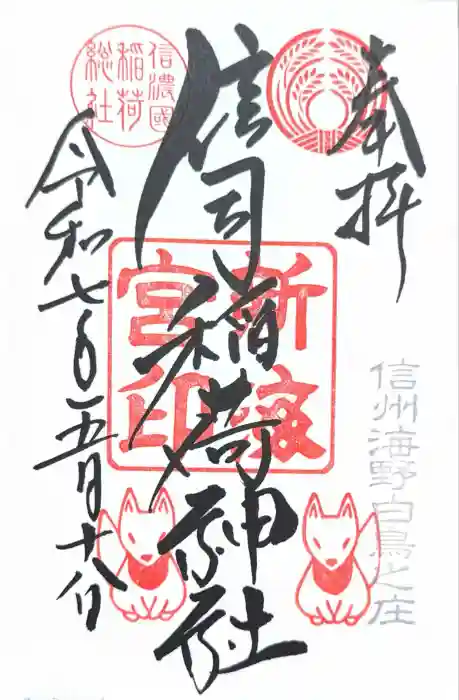 奉拝
信州海野白鳥之庄
信司稲荷神社
信濃國
稲荷
総社
新海
宮印
令和七年五月十八日